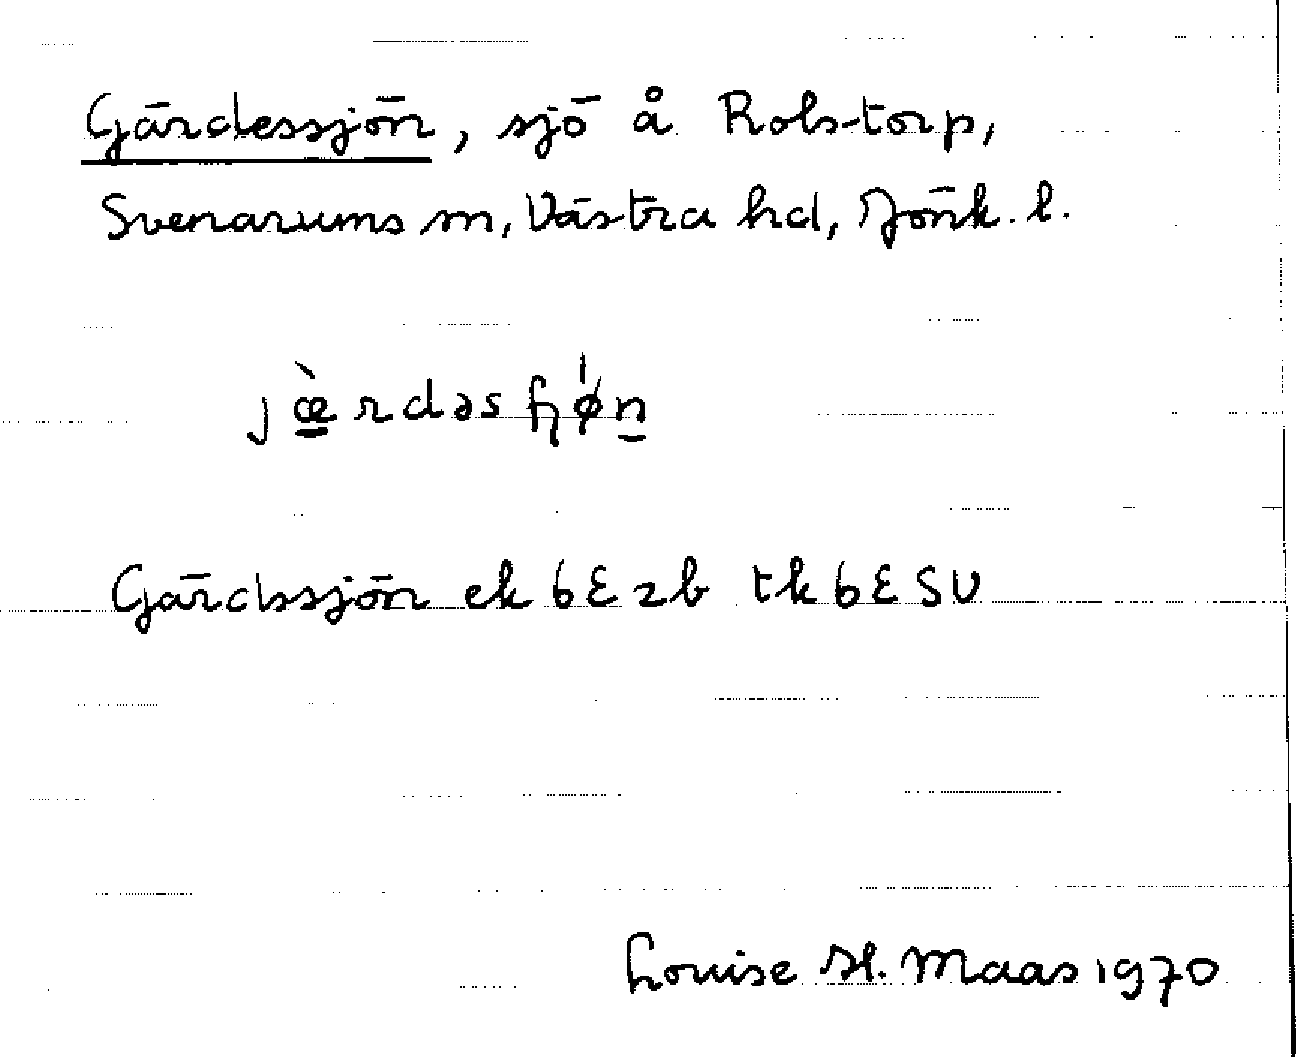 Gärdessjön, sjö å Rolstorp,
Svenarums sn, Västra hd, Jönk. l.
jæ̀rdəsɧǿn
Gärdssjön ek 6E2b tk 6ESV
Louise St. Maas 1970